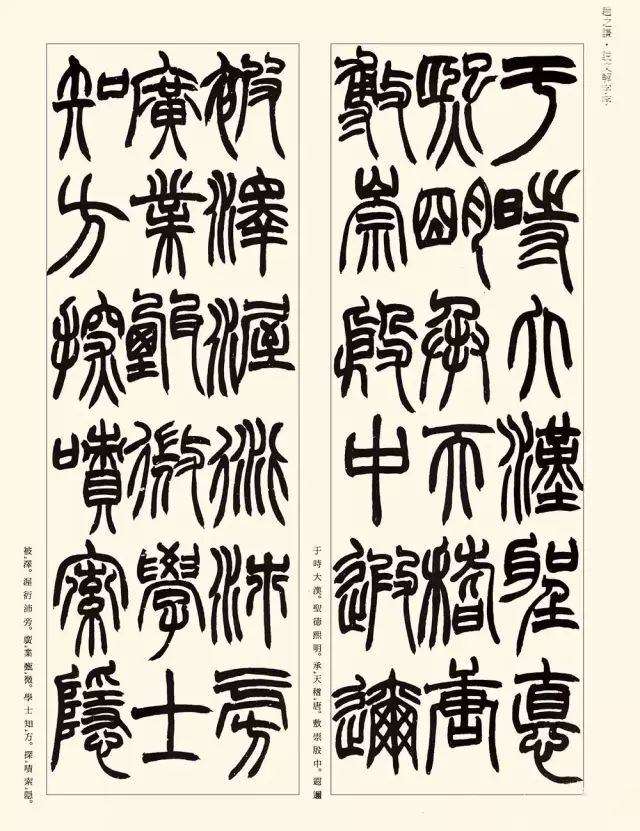 于時大漢聖德
熙明承天稽唐
敷崇殷中遐邇
于時大漢。聖德熙明。承天稽唐。敷崇殷中。遐邇
被澤渥衍沛旁
廣業甄微學士
知方探嘖索隱
被澤。渥衍沛旁。廣業甄微。學士知方。探嘖索隱。